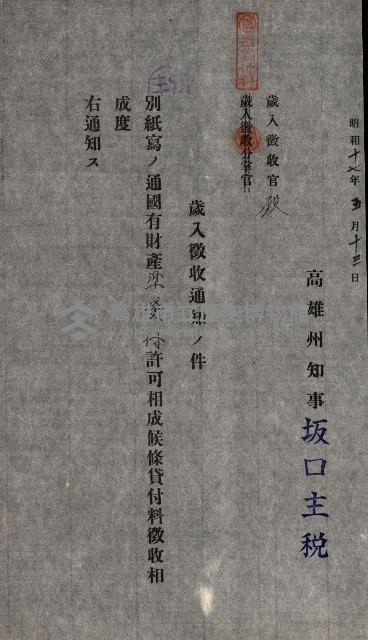 昭和十六年五月十三日
高雄州知事坂口主税
歳入徴收官殿
歳入徴收分掌官
歳入徴收通知ノ件
別紙寫ノ通國有財產貸付許可相成候條貸付料徴收相
成度
右通知ス